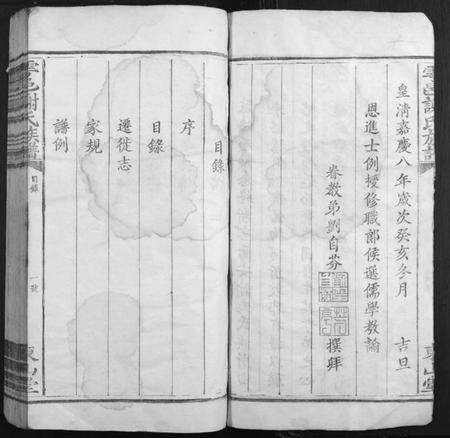 皇清嘉慶八年歲次癸亥冬月 吉旦
恩進士例授修職郎候選儒學教諭
眷教弟劉自芬 撰拜
目錄
序
目錄
遷徙志
家規
譜例
雲邑謝氏族譜
目錄
一號
東山堂